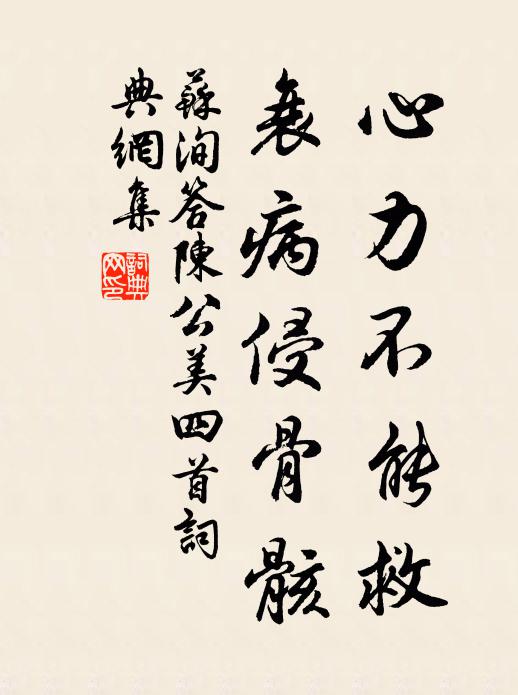 心力不能救
衰病侵骨骸
蘇洵答陳公美四首詞
典網集
詞典
网印